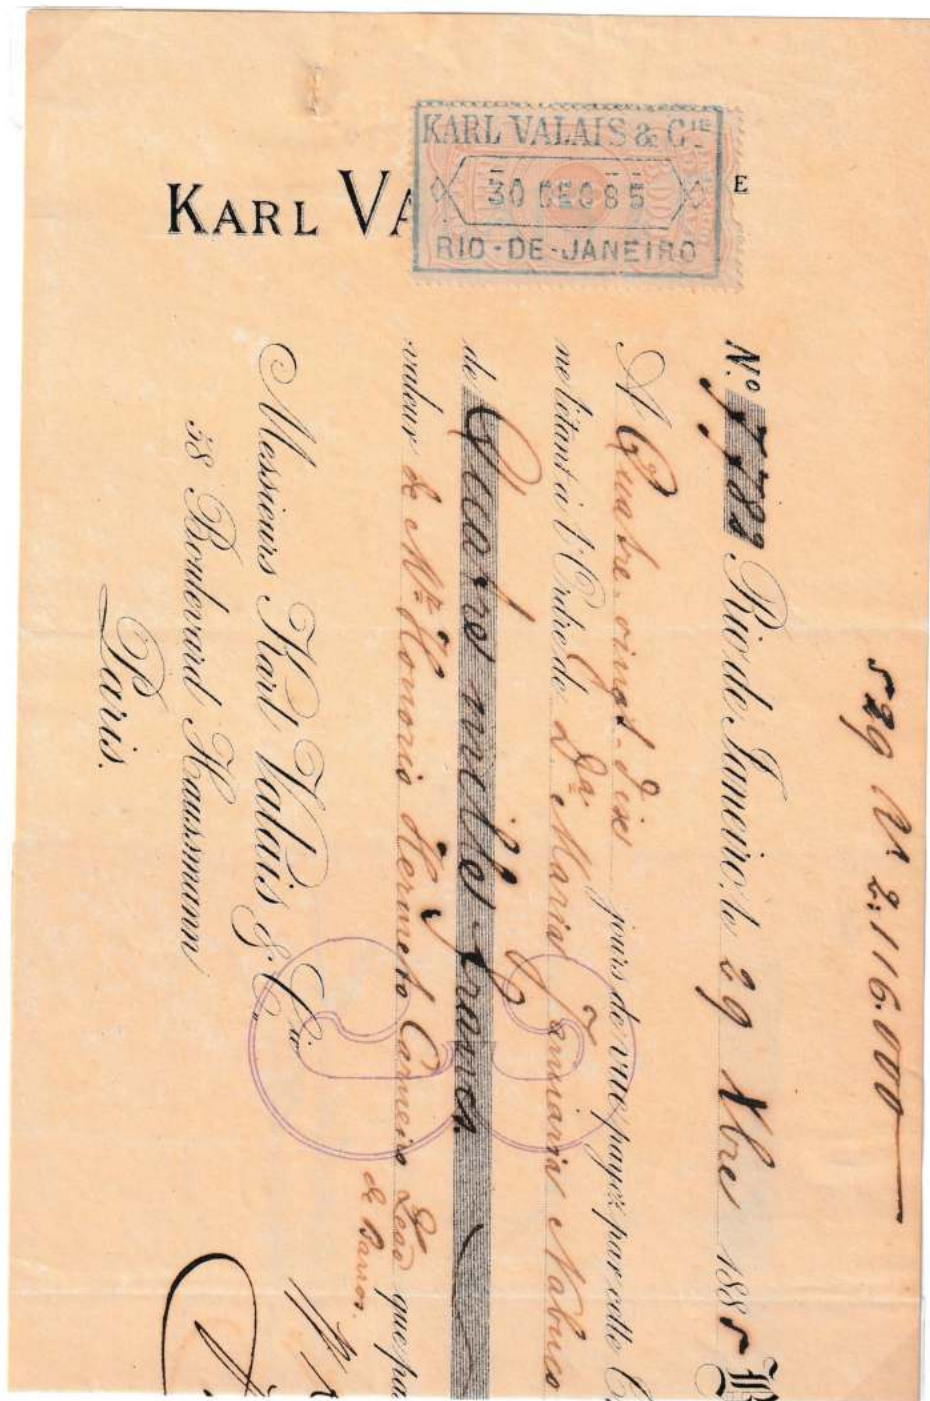 529 Rs 2:116.000
KARL VALAIS & CIE
30 DEC 85
RIO-DE-JANEIRO
KARL VA
E
No. 7782 Rio de Janeiro, le 29 Xbre 1885
A Quatre-vingt-dix jours de vue, payez par cette
ne l'étant à l'Ordre de Da Maria Januaria Nabuco
de Quatre mille francs
valeur de Mr Honorio Hermeto Carneiro Leão que
de Barros.
Messieurs Karl Valais & Cie
38 Boulevard Haussmann
Paris.